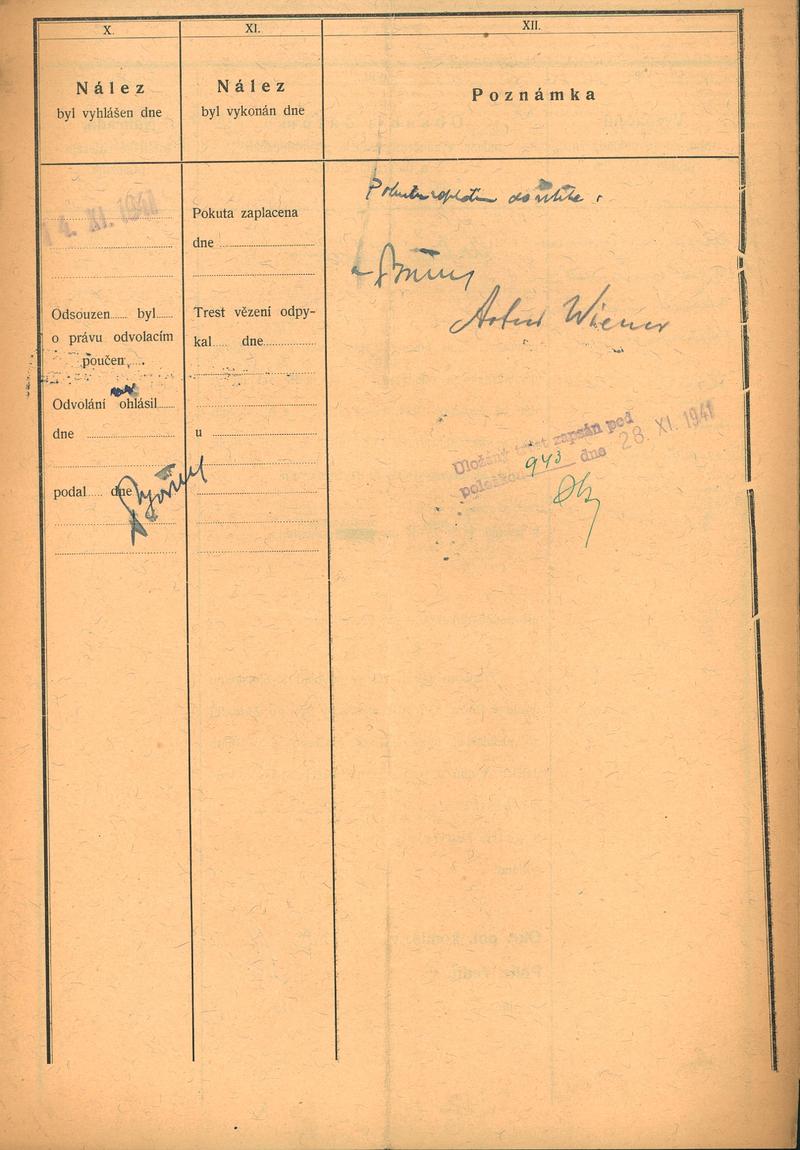 X.
Nález
byl vyhlášen dne
14. XI. 1941
Odsouzen...... byl......
o právu odvolacím
poučen......
Odvolání ohlásil......
dne
podal...... dne
XI.
Nález
byl vykonán dne
Pokuta zaplacena
dne
Trest vězení odpy-
kal...... dne
u
XII.
Poznámka
Artur Wiener
Uložený trest zapsán pod
položkou 943 dne 28. XI. 1941